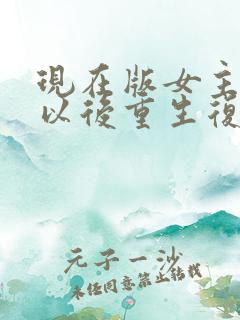 現在版女主
以後重生復
元子一沙
未经同意禁止转载